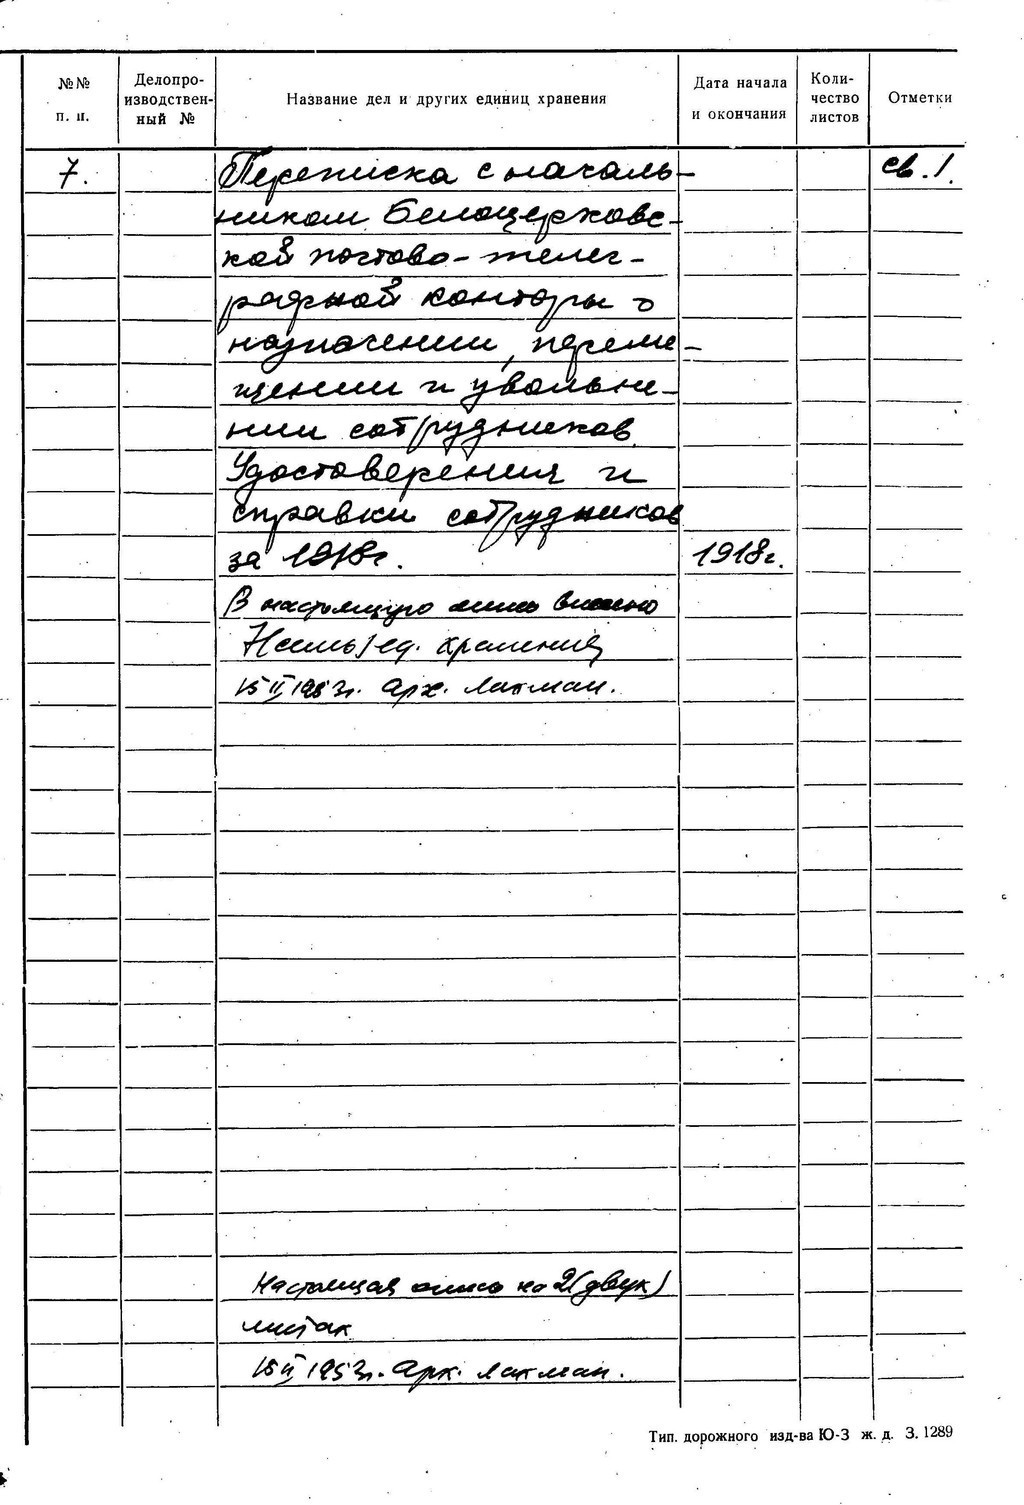 №№ п. п.
Делопро-
изводствен-
ный №
Название дел и других единиц хранения
Дата начала
и окончания
Коли-
чество
листов
Отметки
7. Переписка с началь- св. 1.
ником Белоцерковс-
кой почтово-телег-
рафной конторы о
назначении, переме-
щении и увольне-
нии сотрудников.
Удостоверения и
справки сотрудников
за 1918г. 1918г.
В настоящую опись внесено
7(семь) ед. хранения
15 II 1953г. Арх. Лахман.
Настоящая опись на 2(двух)
листах
15 II 1953г. Арх. Лахман.
Тип. дорожного изд-ва Ю-З ж. д. З. 1289